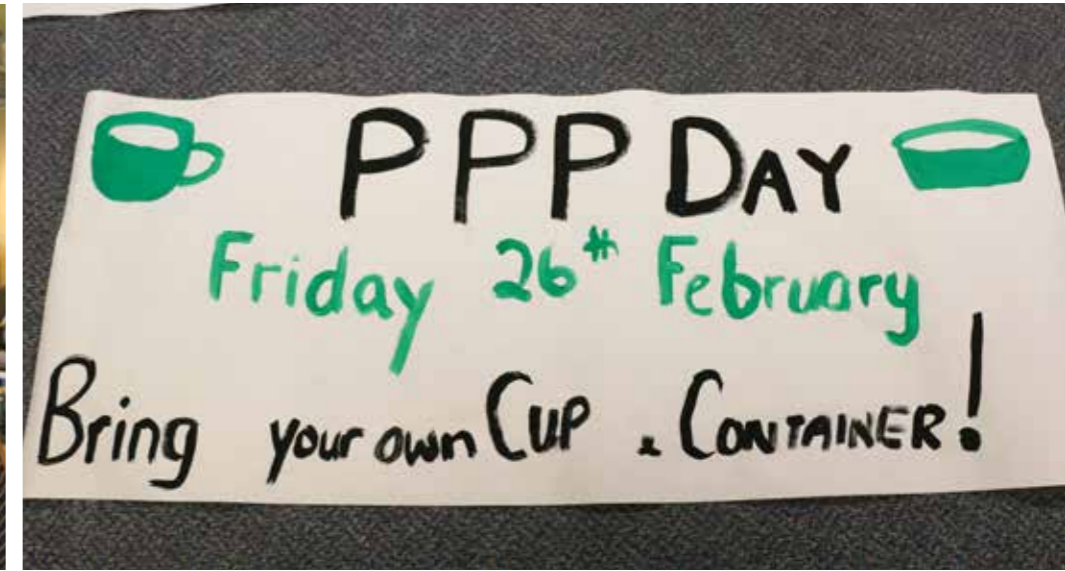 PPP DAY
Friday 26th February
Bring your own CUP & CONTAINER!